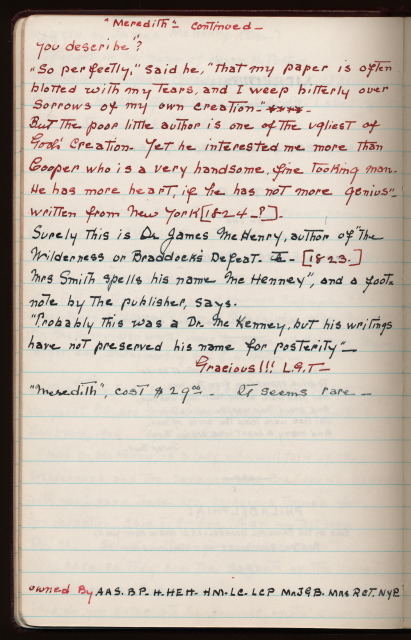 "Meredith" - continued -
you describe"?
"So perfectly," said he, "that my paper is often
blotted with my tears, and I weep bitterly over
sorrows of my own creation." **** -
But the poor little author is one of the ugliest of
God's creation. Yet he interested me more than
Cooper who is a very handsome, fine looking man.
He has more heart, if he has not more genius" -
written from New York [1824-?] -
Surely this is Dr James McHenry, author of "The
Wilderness or Braddock's Defeat. - [1823.]
Mrs Smith spells his name "McHenney", and a foot-
note by the publisher, says.
"Probably this was a Dr. McKenney, but his writings
have not preserved his name for posterity" -
Gracious!!! L.G.T -
"Meredith", cost $29.00 - It seems rare -
owned By AAS. BP. H. HEH. HM. LC. LCP MRJGB. MRS RCT. NYP.